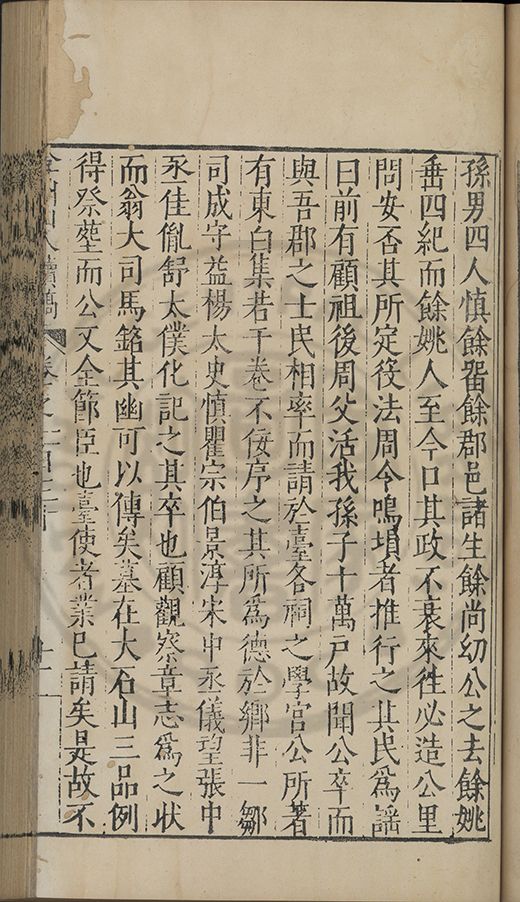 孫男四人慎餘畱餘郡邑諸生餘尚幼公之去餘姚
垂四紀而餘姚人至今口其政不衰來徃必造公里
問安否其所定役法周令鳴塤者推行之其民為謡
曰前有顧祖後周父活我孫子十萬户故聞公卒而
與吾郡之士民相率而請於臺各祠之學宫公所著
有東白集若干卷不佞序之其所爲德於鄉非一鄒
司成守益楊太史慎瞿宗伯景淳宋中丞儀望張中
丞佳胤舒太僕化記之其卒也顧觀察章志爲之狀
而翁大司馬銘其幽可以傳矣墓在大石山三品例
得祭塟而公又全節臣也臺使者業已請矣是故不
人續稿 卷之一百